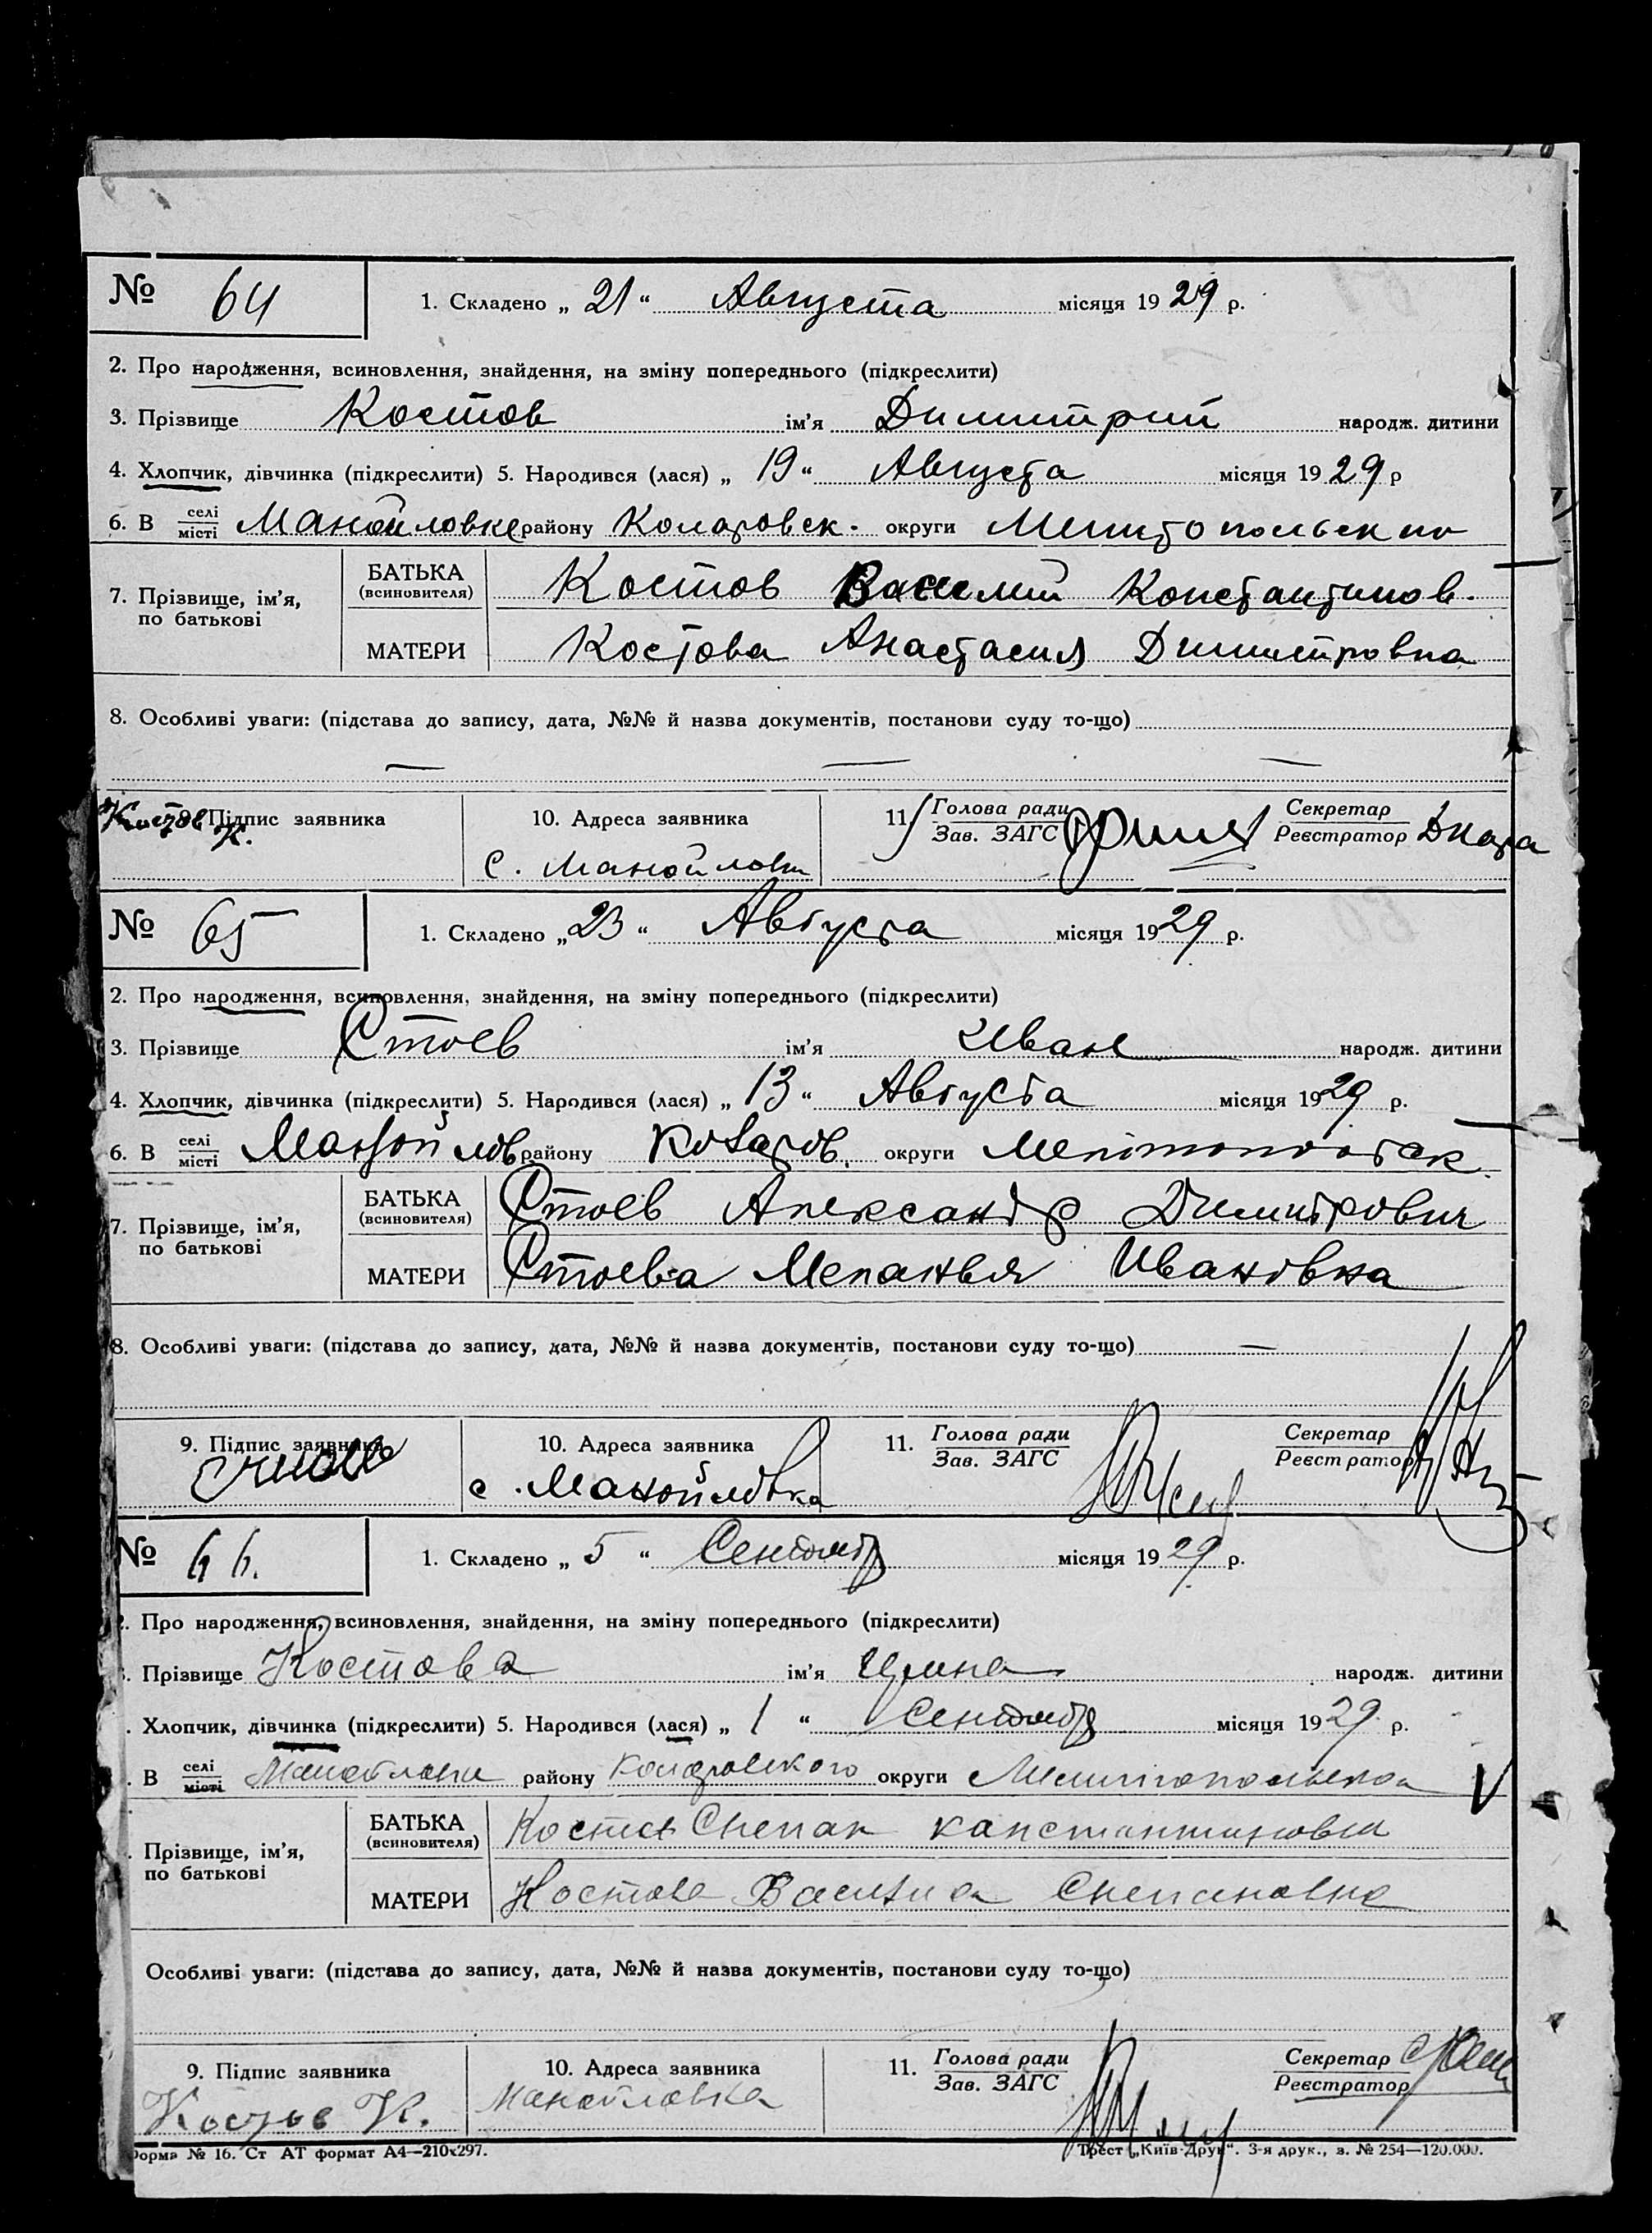 № 64 1. Складено „ 21 “ Августа місяця 1929 р.
2. Про народження, всиновлення, знайдення, на зміну попереднього (підкреслити)
3. Прізвище Костов ім’я Димитрий народж. дитини
4. Хлопчик, дівчинка (підкреслити) 5. Народився (лася) „ 19 “ Августа місяця 1929 р
6. В селі місті Манойловке району Коларовск. округи
7. Прізвище, ім’я, по батькові БАТЬКА (всиновителя) Костов Василий Константинов.
МАТЕРИ Костова Анастасия Димитровна
8. Особливі уваги: (підстава до запису, дата, №№ й назва документів, постанови суду то-що)
— — —
Костов К. Підпис заявника 10. Адреса заявника 11. Голова ради Зав. ЗАГС Секретар Реєстратор
с. Манойловки
№ 65 1. Складено „ 23 “ Августа місяця 1929 р.
2. Про народження, всиновлення, знайдення, на зміну попереднього (підкреслити)
3. Прізвище Стоев ім’я Иван народж. дитини
4. Хлопчик, дівчинка (підкреслити) 5. Народився (лася) „ 13 “ Августа місяця 1929 р.
6. В селі місті Манойлов району Коларов. округи
7. Прізвище, ім’я, по батькові БАТЬКА (всиновителя) Стоев Александр Димитрович
МАТЕРИ Стоева Меланья Ивановна
8. Особливі уваги: (підстава до запису, дата, №№ й назва документів, постанови суду то-що) —
9. Підпис заявника 10. Адреса заявника 11. Голова ради Зав. ЗАГС Секретар Реєстратор
с. Манойловка
№ 66. 1. Складено „ 5 “ місяця 1929 р.
2. Про народження, всиновлення, знайдення, на зміну попереднього (підкреслити)
Прізвище Костова ім’я народж. дитини
. Хлопчик, дівчинка (підкреслити) 5. Народився (лася) „ 1 “ місяця 1929 р.
. В селі місті району Коларовского округи V
. Прізвище, ім’я, по батькові БАТЬКА (всиновителя) Костов Степан
МАТЕРИ Костова Степановна
Особливі уваги: (підстава до запису, дата, №№ й назва документів, постанови суду то-що)
9. Підпис заявника 10. Адреса заявника 11. Голова ради Зав. ЗАГС Секретар Реєстратор
Костов К. Манойловка
Форма № 16. Ст АТ формат А4—210х297. Трест „Київ-Друк“. 3-я друк., з. № 254—120.000.